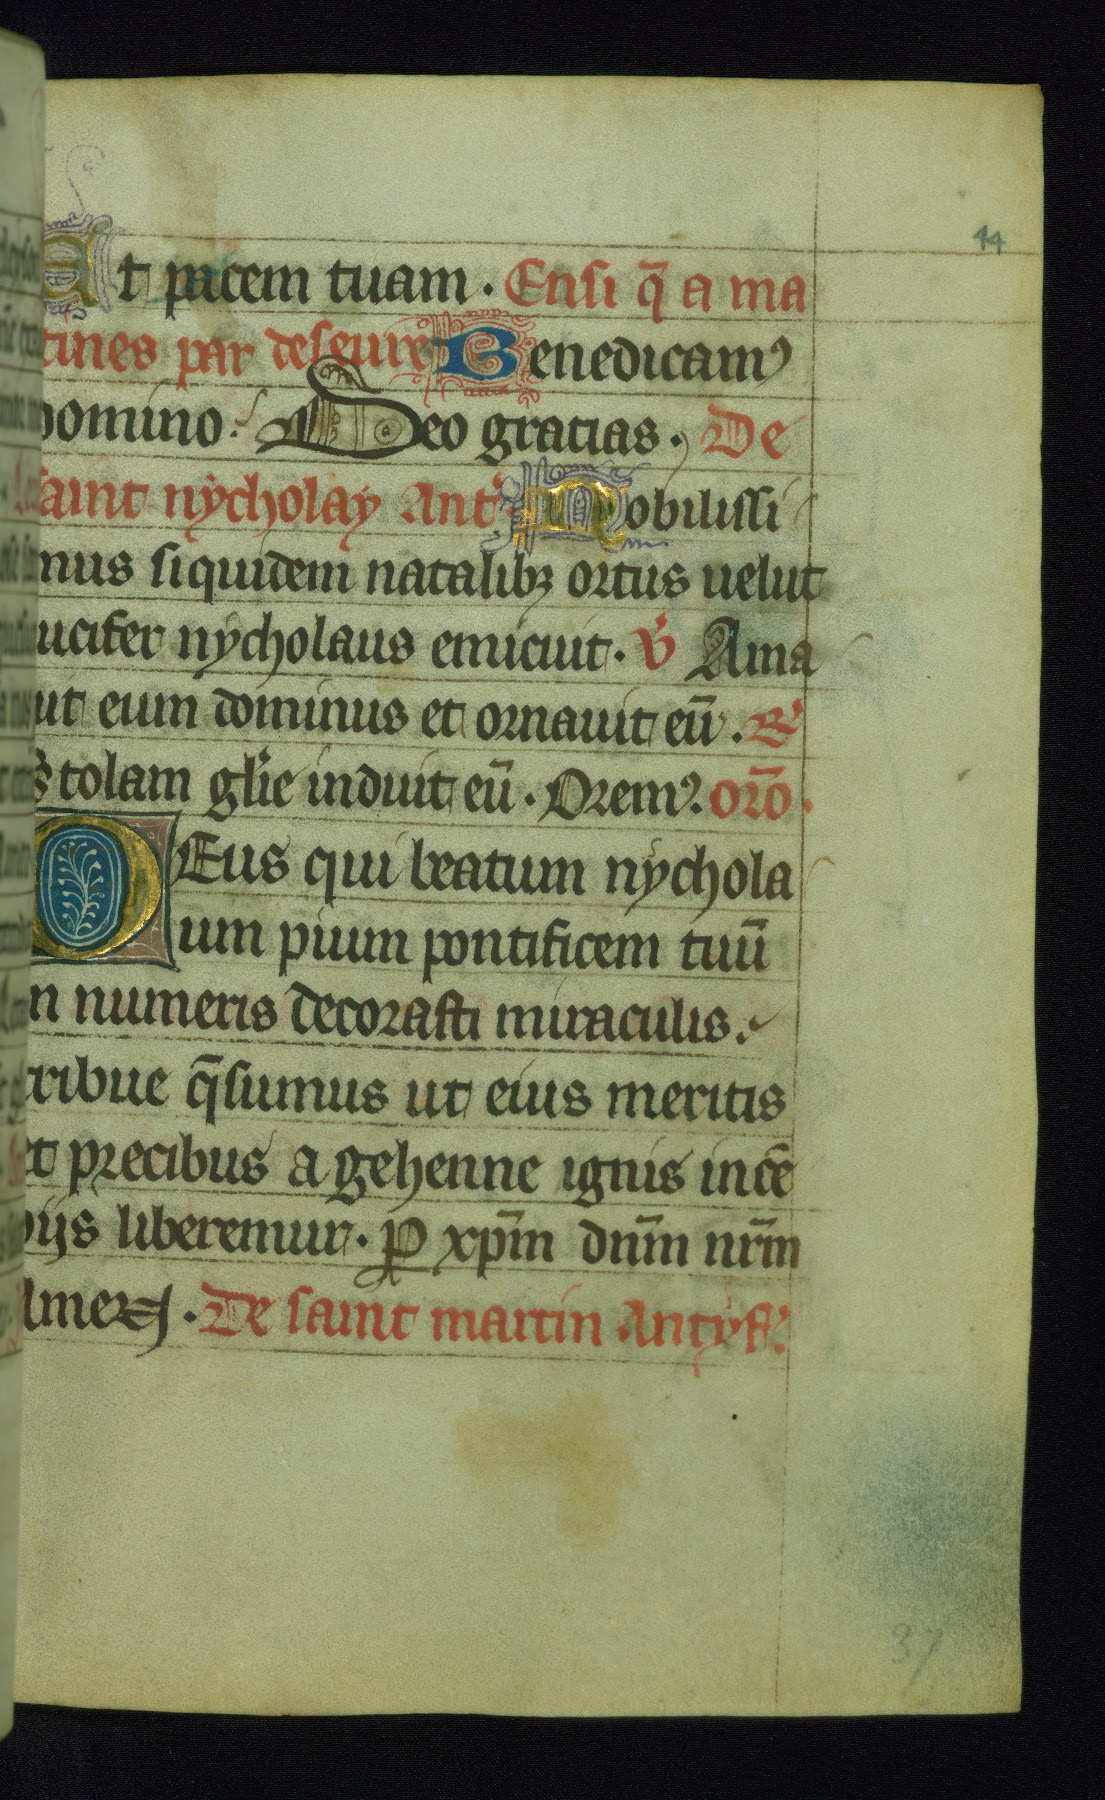 44
Et pacem tuam. Ensi q̄ a ma
tines par deseure Benedicamꝰ
domino. Deo gratias. De
saint nycholay Antꝰ Nobilissi
mus siquidem natalibꝫ ortus uelut
lucifer nycholaus emicuit. ℣ Ama
uit eum dominus et ornauit eū. ℟
Stolam gl̄ie induit eū. Oremꝰ. orō.
DEus qui beatum nychola
um pium pontificem tuū
in numeris decorasti miraculis.
tribue q̄sumus ut eius meritis
et precibus a gehenne ignis incē
dijs liberemur. P xp̄m dn̄m nr̄m
Amen. De saint martin Antyfꝰ.
37